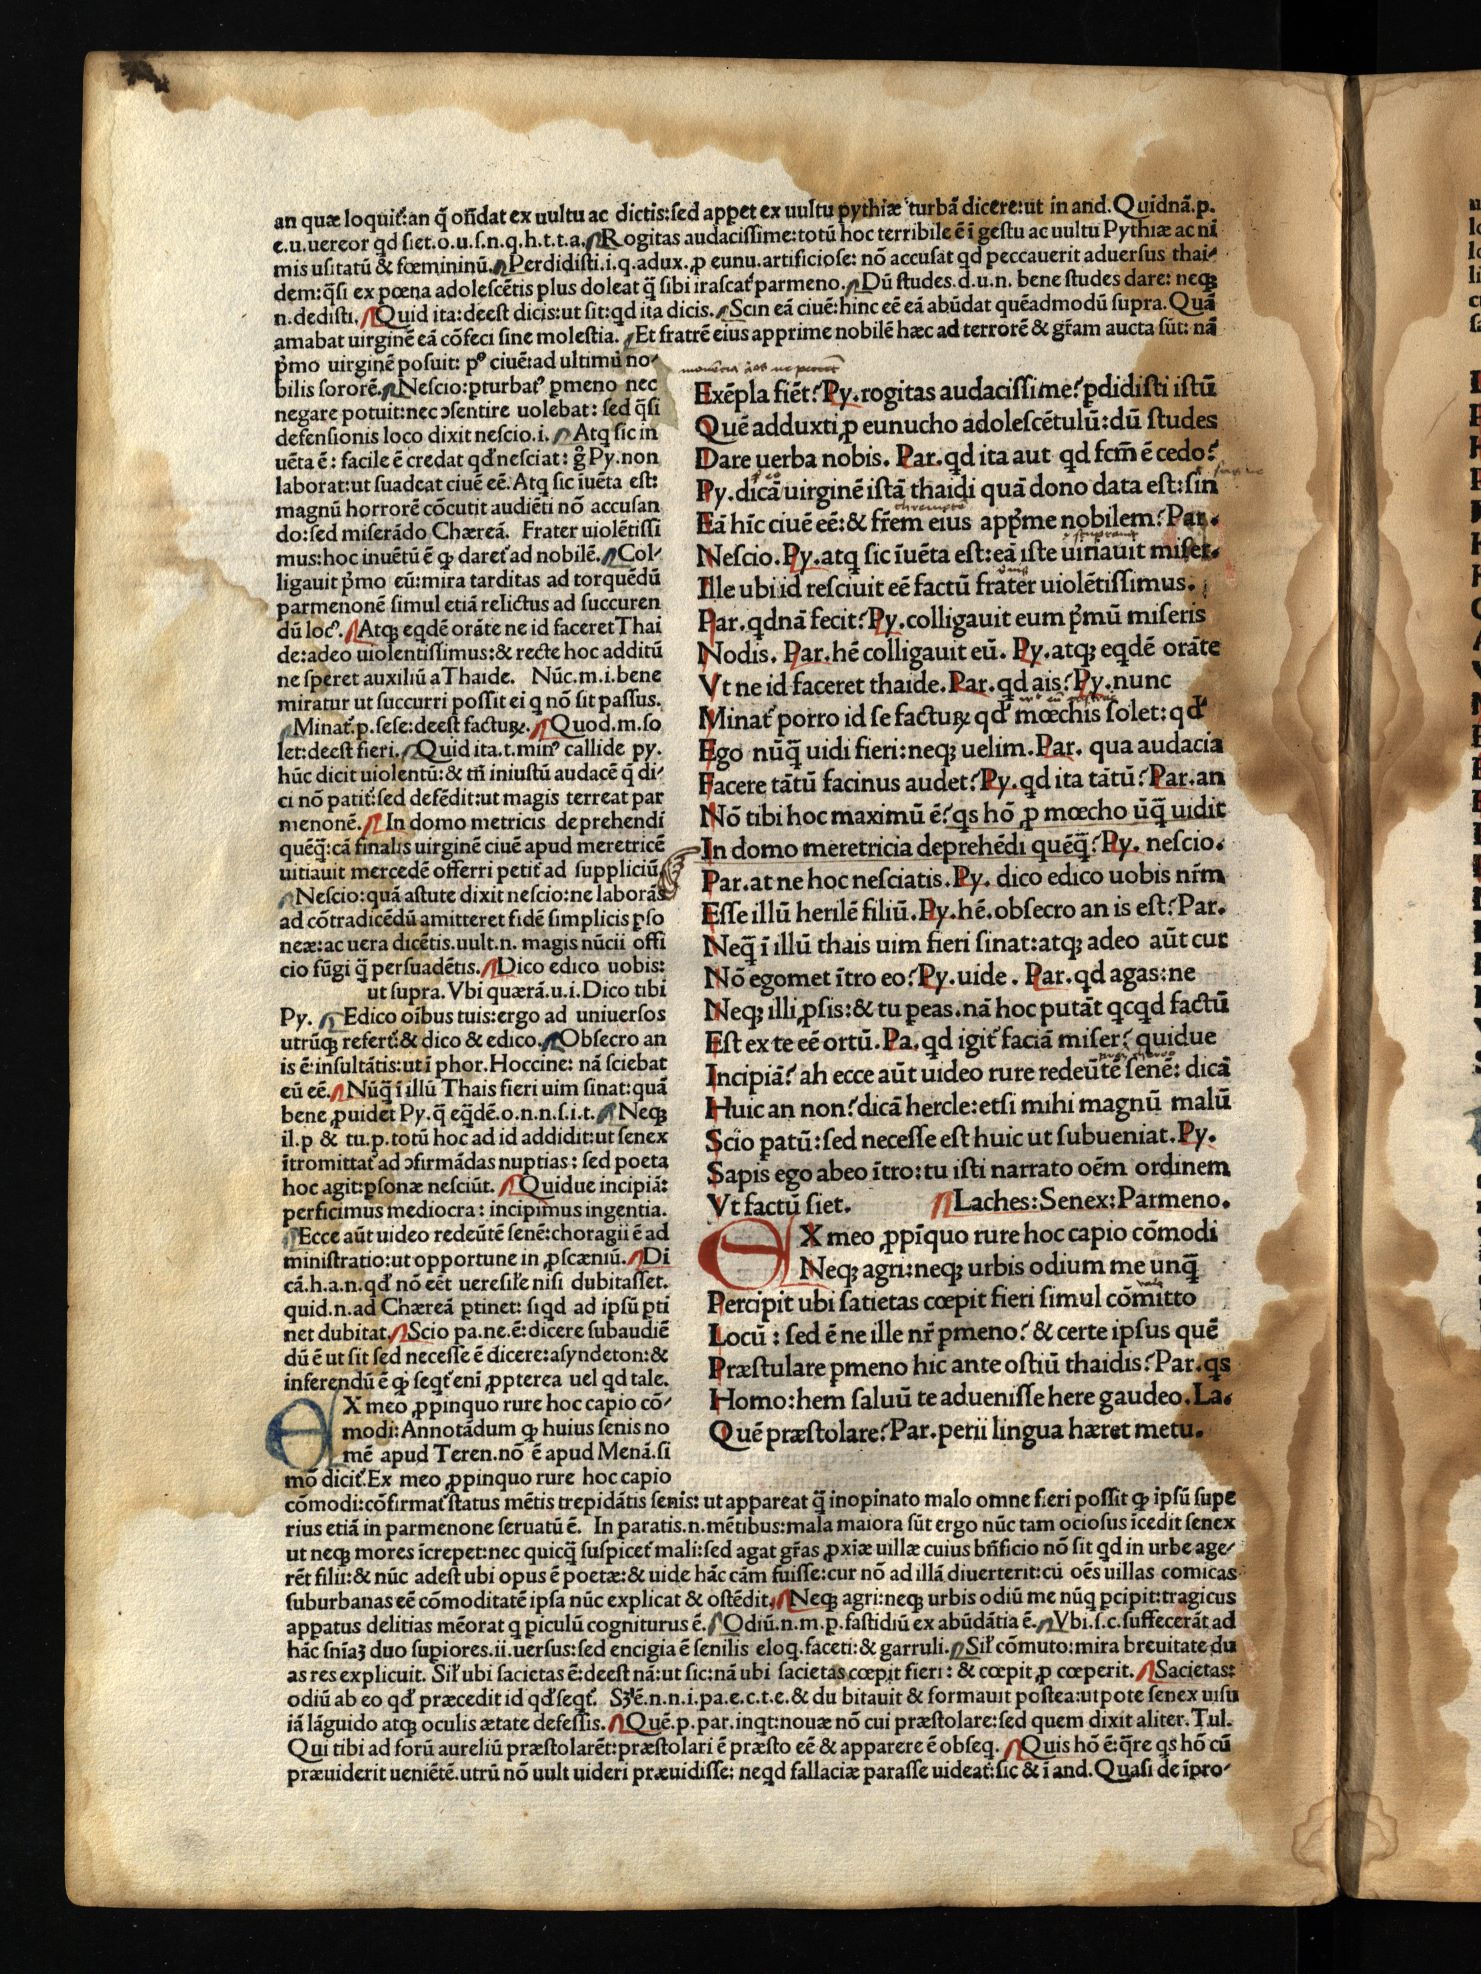 an quæ loquiť:an q̄ oñdat ex uultu ac dictis:sed appet ex uultu pythiæ turbā dicere:ut in and. Quidnā.p.
e.u.uereor qd siet.o.u.s.n.q.h.t.t.a. Rogitas audacissime:totū hoc terribile ē ī gestu ac uultu Pythiæ ac nī
mis usitatū & fœmininū. Perdidisti.i.q.adux.ꝓ eunu.artificiose: nō accusat qd peccauerit aduersus thai-
dem:q̄si ex pœna adolescētis plus doleat q̄ sibi irascať parmeno. Dū studes.d.u.n. bene studes dare: neqꝫ
n.dedisti. Quid ita:deest dicis:ut sit:qd ita dicis. Scin eā ciuē:hinc eē eā abūdat quēadmodū supra. Quā
amabat uirginē eā cōfeci sine molestia. Et fratrē eius apprime nobilē hæc ad terrorē & gr̄am aucta sūt: nā
p̄mo uirginē posuit: pº ciuē:ad ultimū no-
bilis sororē. Nescio:pturbatꝰ pmeno nec
negare potuit:nec ɔsentire uolebat: sed q̄si
defensionis loco dixit nescio.i. Atq sic in
uēta ē: facile ē credat qď nesciat: g̊ Py.non
laborat:ut suadeat ciuē eē. Atq sic īuēta est:
magnū horrorē cōcutit audiēti nō accusan
do:sed miserādo Chæreā. Frater uiolētissi
mus:hoc inuētū ē ꝙ dareť ad nobilē. Col-
ligauit p̄mo eū:mira tarditas ad torquēdū
parmenonē simul etiā relictus ad succuren
dū locꝰ. Atqꝫ eqdē orāte ne id faceret Thai
de:adeo uiolentissimus:& recte hoc additū
ne speret auxiliū a Thaide. Nūc.m.i.bene
miratur ut succurri possit ei q nō sit passus.
Minať.p.sese:deest factuꝝ. Quod.m.so
let:deest fieri. Quid ita.t.minꝰ callide py.
hūc dicit uiolentū:& tn̄ iniustū audacē q̄ di-
ci nō patiť:sed defēdit:ut magis terreat par
menonē. In domo metricis deprehendi
quēq̄:cā finalis uirginē ciuē apud meretricē
uitiauit mercedē offerri petiť ad suppliciū
Nescio:quā astute dixit nescio:ne laborās
ad cōtradicēdū amitteret fidē simplicis pso
neæ:ac uera dicētis.uult.n. magis nūcii offi
cio fūgi q̄ persuadētis. Dico edico uobis:
ut supra. Vbi quærā.u.i.Dico tibi
Py. Edico oībus tuis:ergo ad uniuersos
utrūqꝫ referť:& dico & edico. Obsecro an
is ē:insultātis:ut ī phor. Hoccine: nā sciebat
eū eē. Nūq̄ ī illū Thais fieri uim sinat:quā
bene ꝓuidet Py.q̄ eq̄dē.o.n.n.s.i.t. Neqꝫ
il.p & tu.p.totū hoc ad id addidit:ut senex
ītromittať ad ɔfirmādas nuptias: sed poeta
hoc agit:psonæ nesciūt. Quidue incipiā:
perficimus mediocra: incipimus ingentia.
Ecce aūt uideo redeūtē senē:choragii ē ad
ministratio:ut opportune in ꝓscæniū. Di
cā.h.a.n.qď nō eēt ueresiłe nisi dubitasset.
quid.n.ad Chæreā ptinet: siqd ad ipsū pti
net dubitat. Scio pa.ne.ē:dicere subaudiē
dū ē ut sit sed necesse ē dicere:asyndeton:&
inferendū ē ꝙ seqť eni ꝓpterea uel qd tale.
EX meo ꝓpinquo rure hoc capio cō-
modi:Annotādum ꝙ huius senis no
mē apud Teren.nō ē apud Menā.si
mō diciť.Ex meo ꝓpinquo rure hoc capio
Exēpla fiēt? Py.rogitas audacissime? pdidisti istū
Quē adduxti ꝓ eunucho adolescētulū:dū studes
Dare uerba nobis. Par.qd ita aut qd fcm̄ ē cedo?
Py.dicā uirginē istā thaidi quā dono data est:sin
Eā hīc ciuē eē:& fr̄em eius app̄me nobilem? Par.
Nescio. Py.atq sic īuēta est:eā iste uitiauit miser.
Ille ubi id resciuit eē factū frater uiolētissimus.
Par.qdnā fecit? Py.colligauit eum p̄mū miseris
Nodis. Par.hē colligauit eū. Py.atqꝫ eqdē orāte
Vt ne id faceret thaide. Par.qd ais? Py.nunc
Minať porro id se factuꝝ qď mœchis solet: qď
Ego nūq̄ uidi fieri:neqꝫ uelim. Par. qua audacia
Facere tātū facinus audet? Py.qd ita tātū? Par.an
Nō tibi hoc maximū ē? qs hō ꝓ mœcho ūq̄ uidit
In domo meretricia deprehēdi quēq̄? Py. nescio.
Par.at ne hoc nesciatis. Py. dico edico uobis nr̄m
Esse illū herilē filiū. Py.hē.obsecro an is est? Par.
Neq̄ ī illū thais uim fieri sinat:atqꝫ adeo aūt cur
Nō egomet ītro eo? Py.uide. Par.qd agas:ne
Neqꝫ illi ꝓsis:& tu peas.nā hoc putāt qcqd factū
Est ex te eē ortū. Pa.qd igiť faciā miser? quidue
Incipiā? ah ecce aūt uideo rure redeūtē senē: dicā
Huic an non? dicā hercle:etsi mihi magnū malū
Scio patū:sed necesse est huic ut subueniat. Py.
Sapis ego abeo ītro:tu isti narrato oēm ordinem
Vt factū siet. Laches:Senex:Parmeno.
EX meo ꝓpīquo rure hoc capio cōmodi
Neqꝫ agri:neqꝫ urbis odium me unq̄
Percipit ubi satietas cœpit fieri simul cōmitto
Locū: sed ē ne ille nr̄ pmeno? & certe ipsus quē
Præstulare pmeno hic ante ostiū thaidis? Par.qs
Homo:hem saluū te aduenisse here gaudeo. La.
Quē præstolare? Par.perii lingua hæret metu.
cōmodi:cōfirmať status mētis trepidātis senis: ut appareat q̄ inopinato malo omne fieri possit ꝙ ipsū supe
rius etiā in parmenone seruatū ē. In paratis.n.mētibus:mala maiora sūt ergo nūc tam ociosus īcedit senex
ut neqꝫ mores īcrepet:nec quicq̄ suspiceť mali:sed agat gr̄as ꝓxīæ uillæ cuius bn̄ficio nō sit qd in urbe age-
rēt filii:& nūc adest ubi opus ē poetæ:& uide hāc cām fuisse:cur nō ad illā diuerterit:cū oēs uillas comicas
suburbanas eē cōmoditatē ipsa nūc explicat & ostēdit. Neqꝫ agri:neqꝫ urbis odiū me nūq pcipit:tragicus
appatus delitias mēorat q piculū cogniturus ē. Odiū.n.m.p.fastidiū ex abūdātia ē. Vbi.s.c.suffecerāt ad
hāc sn̄iaꝫ duo supiores.ii.uersus:sed encigia ē senilis eloq.faceti:& garruli. Sił cōmuto:mira breuitate du
as res explicuit. Sił ubi sacietas ē:deest nā:ut sic:nā ubi sacietas cœpit fieri: & cœpit ꝓ cœperit. Sacietas:
odiū ab eo qď præcedit id qď seqť. Sꝫ ē.n.n.i.pa.e.c.t.e.& du bitauit & formauit postea:utpote senex uisu
iā lāguido atqꝫ oculis ætate defessis. Quē.p.par.inqt:nouæ nō cui præstolare:sed quem dixit aliter. Tul.
Qui tibi ad forū aureliū præstolarēt:præstolari ē præsto eē & apparere ē obseq. Quis hō ē:q̄re qs hō cū
præuiderit ueniētē.utrū nō uult uideri præuidisse: neqd fallaciæ parasse uideať:sic & ī and. Quasi de īpro-